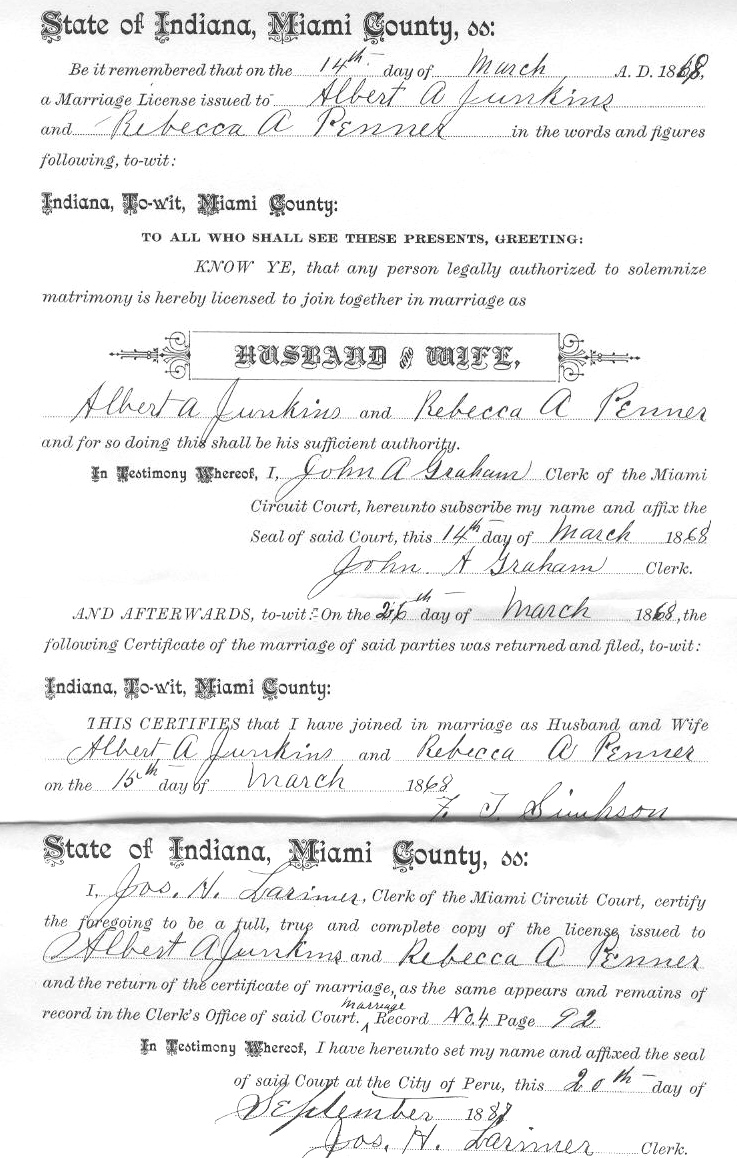 State of Indiana, Miami County, ss:
Be it remembered that on the 14th day of March A. D. 1868,
a Marriage License issued to Albert A Junkins
and Rebecca A Penner in the words and figures
following, to-wit:
Indiana, To-wit, Miami County:
TO ALL WHO SHALL SEE THESE PRESENTS, GREETING:
KNOW YE, that any person legally authorized to solemnize
matrimony is hereby licensed to join together in marriage as
HUSBAND and WIFE,
Albert A Junkins and Rebecca A Penner
and for so doing this shall be his sufficient authority.
In Testimony Whereof, I, John A Graham Clerk of the Miami
Circuit Court, hereunto subscribe my name and affix the
Seal of said Court, this 14th day of March 1868
John A Graham Clerk.
AND AFTERWARDS, to-wit: On the 26th day of March 1868, the
following Certificate of the marriage of said parties was returned and filed, to-wit:
Indiana, To-wit, Miami County:
THIS CERTIFIES that I have joined in marriage as Husband and Wife
Albert A Junkins and Rebecca A Penner
on the 15th day of March 1868
F. T. Simpson
State of Indiana, Miami County, ss:
I, Jos. H. Larimer, Clerk of the Miami Circuit Court, certify
the foregoing to be a full, true and complete copy of the license issued to
Albert A Junkins and Rebecca A Penner
and the return of the certificate of marriage, as the same appears and remains of
record in the Clerk's Office of said Court. Marriage Record No. 4 Page 92
In Testimony Whereof, I have hereunto set my name and affixed the seal
of said Court at the City of Peru, this 20th day of
September
Jos. H. Larimer Clerk.